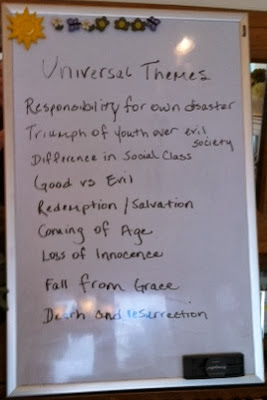 Universal Themes
Responsibility for own disaster
Triumph of youth over evil
society
Difference in Social Class
Good vs Evil
Redemption / Salvation
Coming of Age
Loss of Innocence
Fall from Grace
Death and resurrection